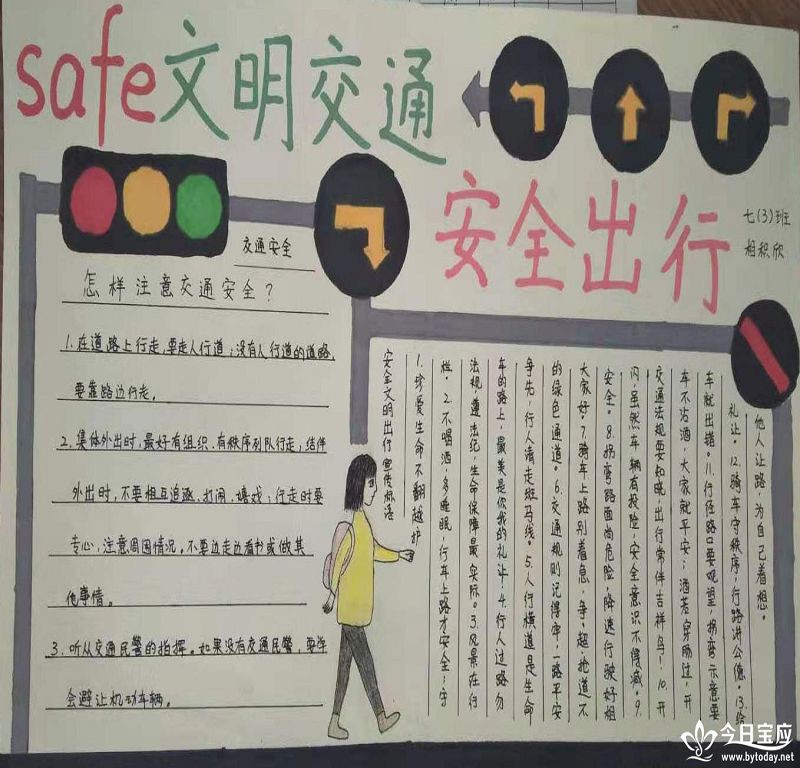 safe文明交通
安全出行
七(3)班
相积欣
交通安全
怎样注意交通安全?
1.在道路上行走,要走人行道;没有人行道的道路,
要靠路边行走。
2.集体外出时,最好有组织、有秩序列队行走;结伴
外出时,不要相互追逐、打闹、嬉戏;行走时要
专心,注意周围情况。不要边走边看书或做其
他事情。
3.听从交通民警的指挥。如果没有交通民警,要学
会避让机动车辆。
安全文明出行宣传标语
1.珍爱生命不翻越护
栏。2.不喝酒,多睡眠,行车上路才安全;守
法规遵法纪,生命保障最实际。3.风景在行
车的路上,最美是你我的礼让。4.行人过路勿
争先,行人请走斑马线。5.人行横道是生命
的绿色通道。6.交通规则记得牢,一路平安
大家好。7.骑车上路别着急,争、超、抢道不
安全。8.拐弯路面尚危险,降速行驶好相
闪,虽然车辆有投险,安全意识不得减。9.
交通法规要知晓,出行常伴吉祥鸟!10.开
车不沾酒,大家就平安;酒若穿肠过,开
车就出错。11.行径路口要观望,拐弯示意要
礼让。12.骑车守秩序,行路讲公德。13.给
他人让路,为自己着想。
今日宝应
www.bytoday.net